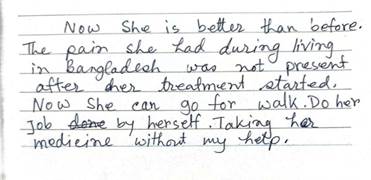 Now She is better than before.
The pain she had during living
in Bangladesh was not present
after her treatment started.
Now She can go for walk. Do her
Job done by herself. Taking her
medicine without my help.